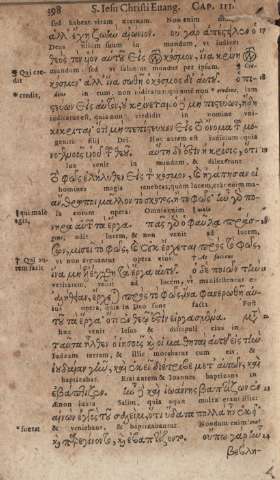 398 S. Iesu Christi Euang. CAP. III.
sed habeat vitam æternam. Non enim
ἀλλ' ἔχῃ ζωὴν αἰώνιον. οὐ γὰρ ἀπέστειλεν ὁ 17
Deus filium suum in mundum, vt iudicet
θεὸς τὸν υἱὸν αὐτοῦ εἰς τὸν κόσμον, ἵνα κρίνῃ τὸν
† Qui cre- mundum: sed vt saluetur mundus per ipsum. Qui
dit κόσμον· ἀλλ' ἵνα σωθῇ ὁ κόσμος δι' αὐτοῦ. ὁ πι- 18
* credit, in eum, non iudicatur: qui autem non credit, iam
στεύων εἰς αὐτὸν, οὐ κρίνεται. ὁ δὲ μὴ πιστεύων, ἤδη
iudicatus est, quia non credidit in nomine vni-
κέκριται, ὅτι μὴ πεπίστευκεν εἰς τὸ ὄνομα τοῦ μο-
geniti filij Dei. Hoc autem est iudicium:
νογενοῦς υἱοῦ τοῦ θεοῦ. αὕτη δέ ἐστιν ἡ κρίσις, ὅτι 19
lux venit in mundum, & dilexerunt
τὸ φῶς ἐλήλυθεν εἰς τὸν κόσμον, καὶ ἠγάπησαν οἱ
homines magis tenebras, quàm lucem, erāt enim ma-
ἄνθρωποι μᾶλλον τὸ σκότος, ἢ τὸ φῶς· ἦν γὰρ πο-
‖ qui malè la eorum opera: Omnis enim ‖ mala
agit, νηρὰ αὐτῶν τὰ ἔργα. πᾶς γὰρ ὁ φαῦλα πράσ- 20
gens, odit lucem, & non venit ad lucem,
σων, μισεῖ τὸ φῶς, καὶ οὐκ ἔρχεται πρὸς τὸ φῶς,
‡ Qui ve- vt non arguantur opera eius.
ritatem facit ἵνα μὴ ἐλεγχθῇ τὰ ἔργα αὐτοῦ. ὁ δὲ ποιῶν τὴν 21
veritatem, venit ad lucem, vt manifestentur
ἀλήθειαν, ἔρχεται πρὸς τὸ φῶς, ἵνα φανερωθῇ αὐ-
opera, quia in Deo sunt facta. Post
τοῦ τὰ ἔργα, ὅτι ἐν θεῷ ἐστιν εἰργασμένα. Μετὰ 22
hæc venit Iesus & discipuli eius in
ταῦτα ἦλθεν ὁ ἰησοῦς, καὶ οἱ μαθηταὶ αὐτοῦ εἰς τὴν
Iudæam terram, & illic morabatur cum eis, &
ἰουδαίαν γῆν, καὶ ἐκεῖ διέτριβε μετ' αὐτῶν, καὶ
baptizabat. Erat autem & Ioannes, baptizans in
ἐβάπτιζεν. ἦν δὲ καὶ ἰωάννης βαπτίζων ἐν 23
Ænon iuxta Salim, quia aquæ multæ erant illic:
αἰνὼν ἐγγὺς τοῦ σαλείμ, ὅτι ὕδατα πολλὰ ἦν ἐκεῖ·
& veniebant, & baptizabantur. Nondum enim
καὶ παρεγένοντο, καὶ ἐβαπτίζοντο. οὔπω γὰρ ἦν 24
βεβλη-